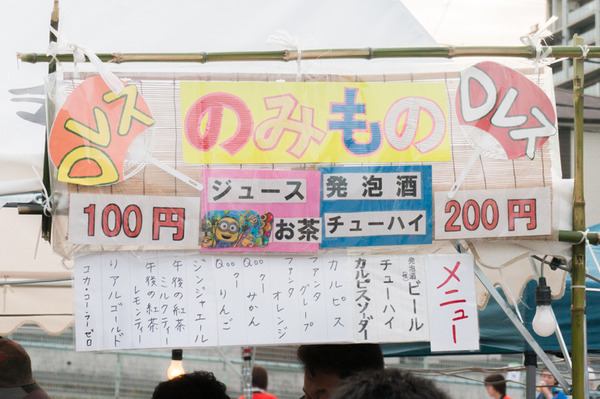 のみもの
DLS
DLS
100円
ジュース
お茶
発泡酒
チューハイ
200円
メニュー
発泡酒
ビール
チューハイ
カルピスソーダー
カルピス
ファンタ グレープ
ファンタ オレンジ
Qoo みかん
Qoo りんご
ジンジャエール
午後の紅茶 ミルクティー
午後の紅茶 レモンティー
リアルゴールド
コカ・コーラゼロ